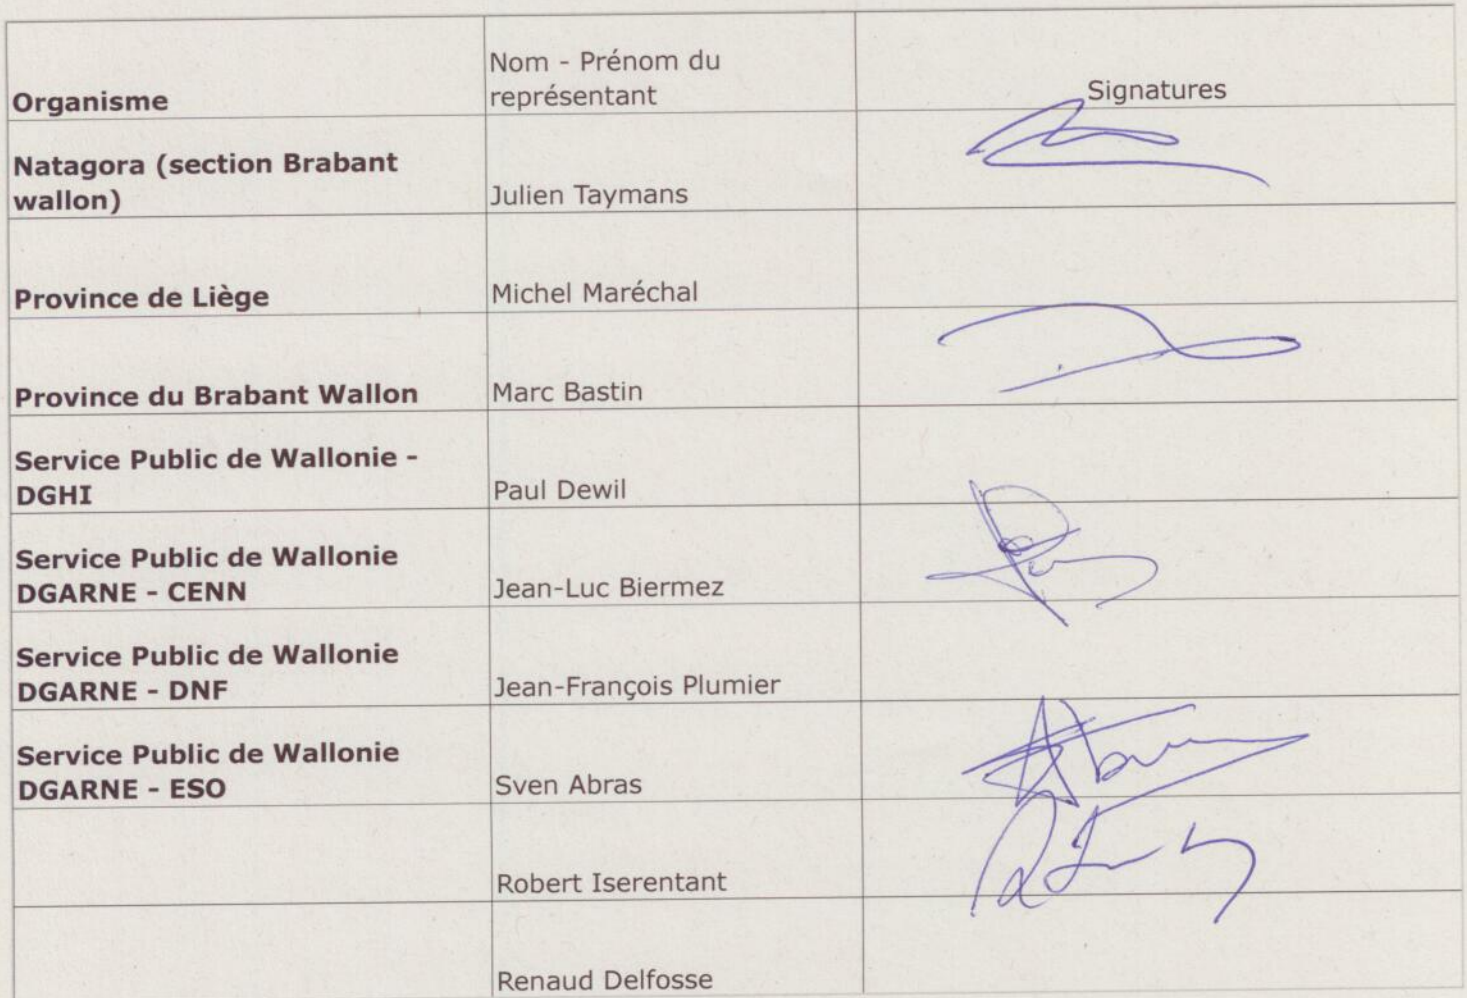 Organisme
Nom - Prénom du
représentant
Signatures
Natagora (section Brabant
wallon)
Julien Taymans
Province de Liège
Michel Maréchal
Province du Brabant Wallon
Marc Bastin
Service Public de Wallonie -
DGHI
Paul Dewil
Service Public de Wallonie
DGARNE - CENN
Jean-Luc Biermez
Service Public de Wallonie
DGARNE - DNF
Jean-François Plumier
Service Public de Wallonie
DGARNE - ESO
Sven Abras
Robert Iserentant
Renaud Delfosse